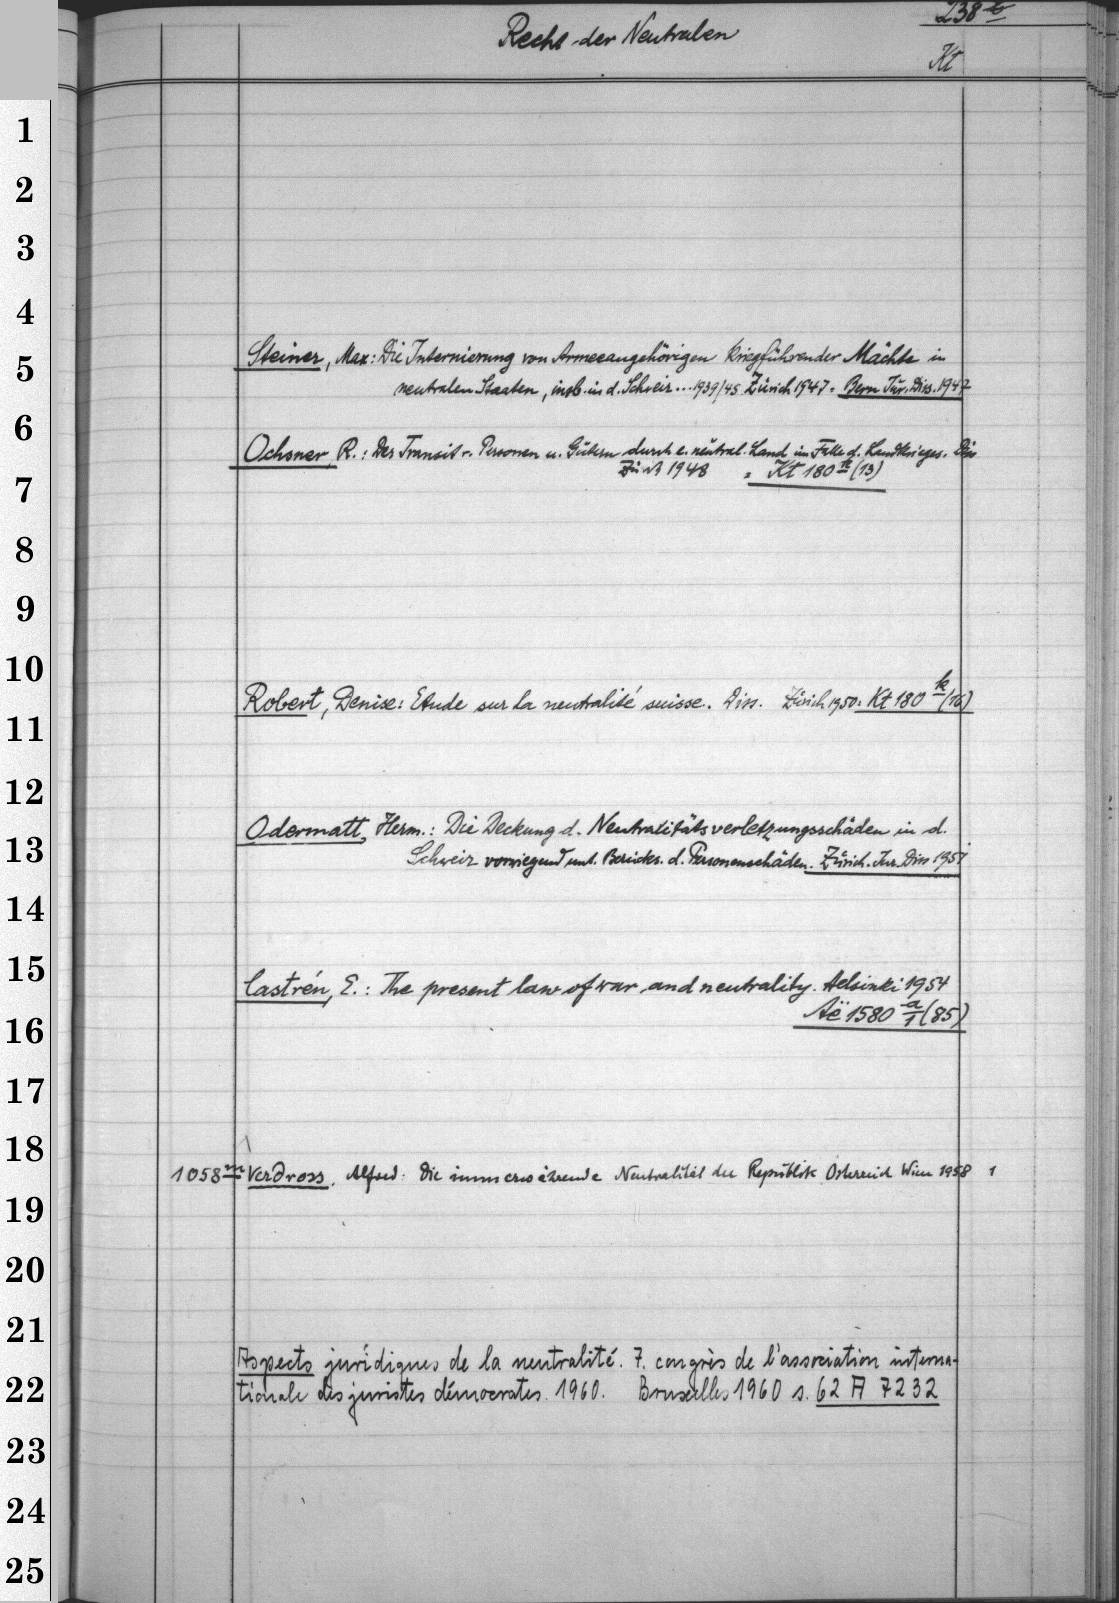 238 b
Recht der Neutralen
Kt
1
2
3
4
Steiner, Max: Die Internierung von Armeeangehörigen kriegführender Mächte in
5
neutralen Staaten, insb. in d. Schweiz ... 1939/45 Zürich 1947. Bern Jur. Diss. 1947
6
Ochsner, R.: Der Transit v. Personen u. Gütern durch e. neutral. Land im Falle d. Landkrieges. Diss
Zürich 1948 = Kt 180 k (13)
7
8
9
10
Robert, Denise: Etude sur la neutralité suisse. Diss. Zürich 1950: Kt 180 k (16)
11
12
Odermatt, Herm.: Die Deckung d. Neutralitätsverletzungsschäden in d.
13
Schweiz vorwiegend unt. Berücks. d. Personenschäden. Zürich. Jur. Diss 1951
14
15
Castrén, E.: The present law of war and neutrality. Helsinki 1954
Aë 1580 a/1 (85)
16
17
18
1058 m Verdross, Alfred: Die immerwährende Neutralität der Republik Österreich Wien 1958 1
19
20
21
Aspects juridiques de la neutralité. 7. congrès de l'association interna-
22
tionale des juristes démocrates. 1960. Bruxelles 1960 s. 62 A 7232
23
24
25